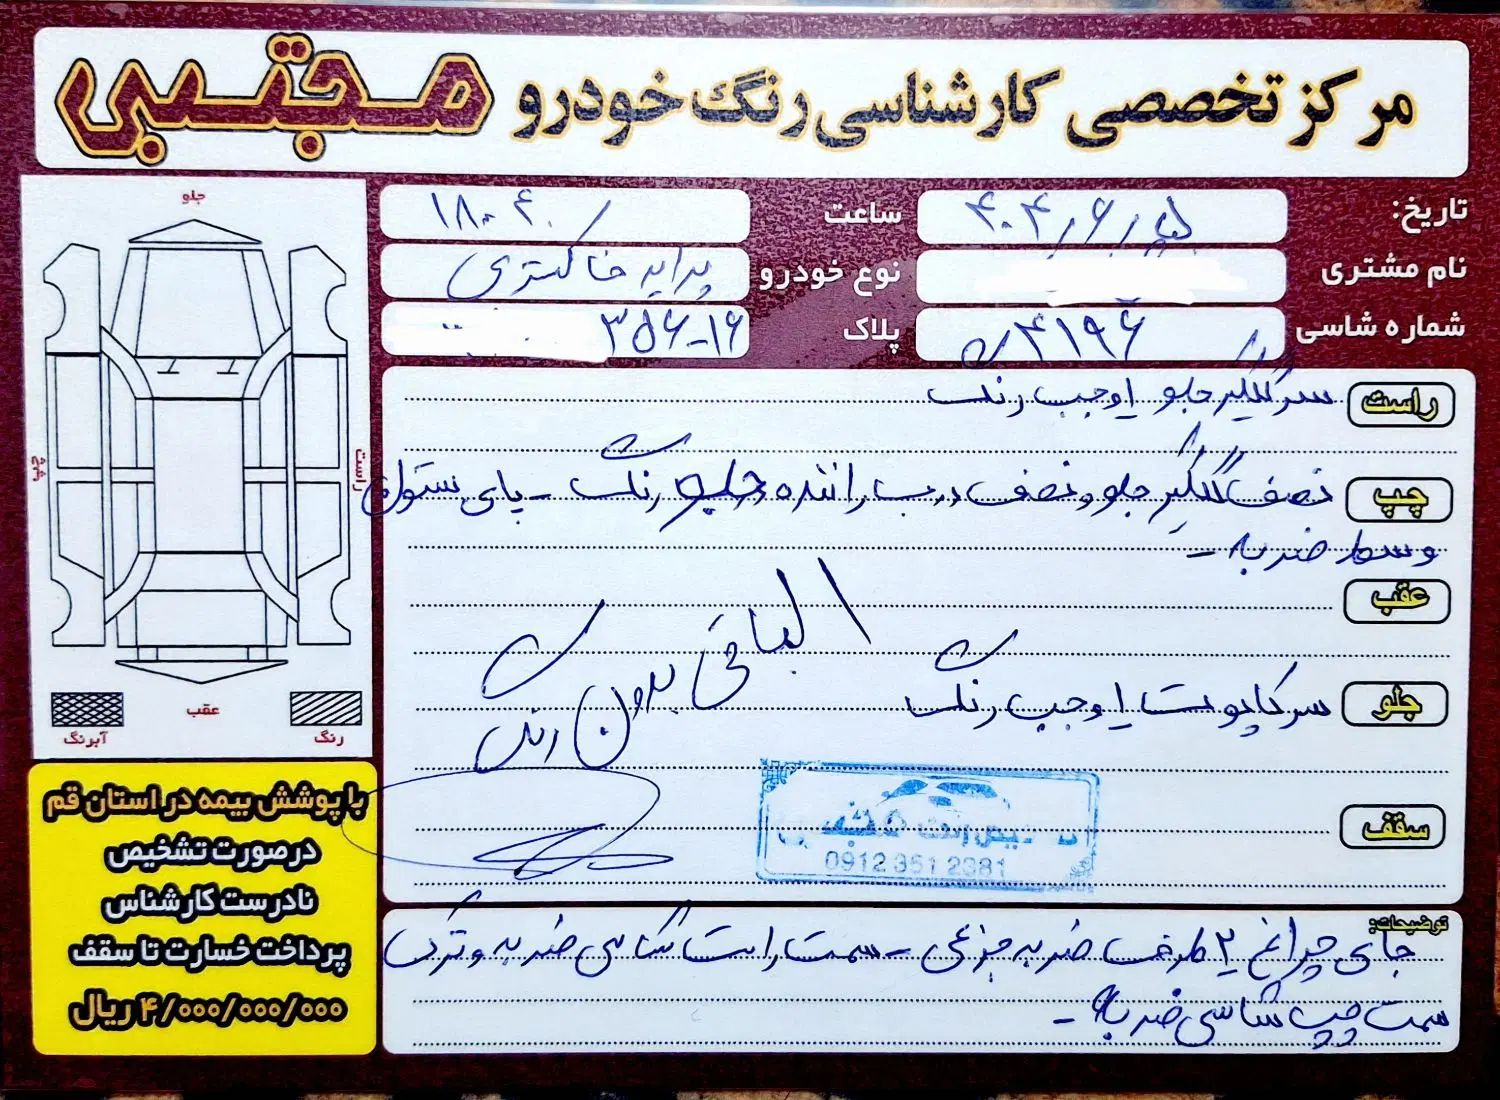 مرکز تخصصی کارشناسی رنگ خودرو مجتبی
تاریخ: ۴۰۴/۶/۲۵
ساعت ۱۸:۴۰
نام مشتری
نوع خودرو پراید خاکستری
شماره شاسی ۴۱۹۶
پلاک ۳۵۶-۱۶
راست سر گلگیر جلو ۱ وجب رنگ
چپ نصف گلگیر جلو و نصف درب راننده رنگ - پای ستون
وسط ضربه -
عقب
الباقی بدون رنگ
جلو سر کاپوت ۱ وجب رنگ
سقف
0912 351 2381
توضیحات:
جای چراغ ۲ طرف ضربه جزئی - سمت راست شاسی ضربه و ترک
سمت چپ شاسی ضربه -
جلو
چپ
راست
عقب
آبرنگ
رنگ
با پوشش بیمه در استان قم
درصورت تشخیص
نادرست کارشناس
پرداخت خسارت تا سقف
۴/۰۰۰/۰۰۰/۰۰۰ ریال